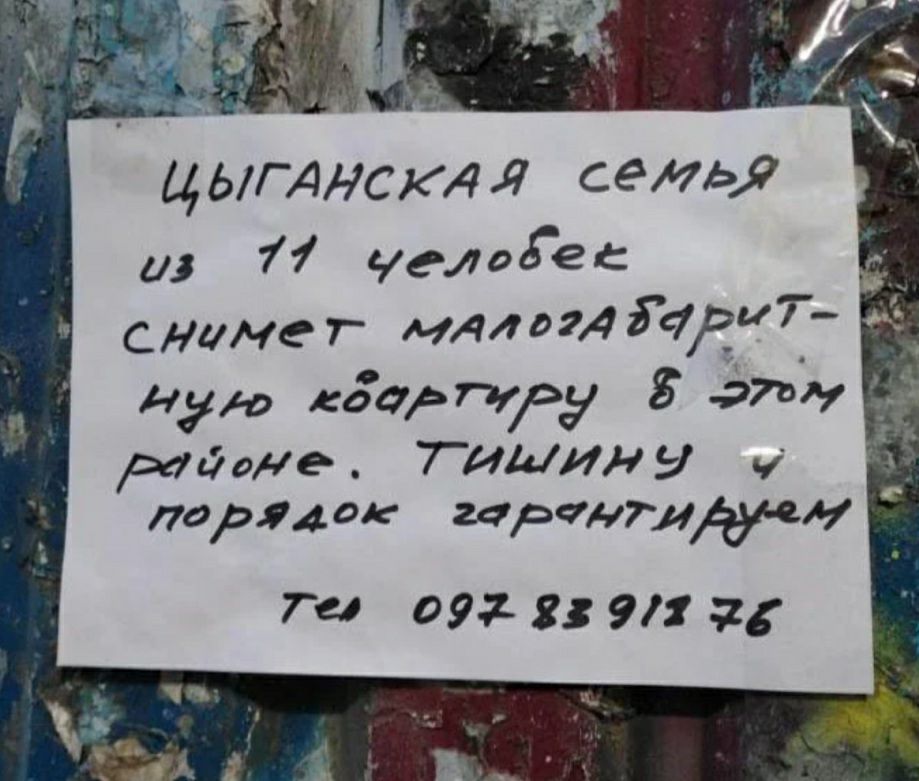 Цыганская семья
из 11 человек
снимет малогабарит-
ную квартиру в этом
районе. Тишину и
порядок гарантируем
тел 097 83 918 76